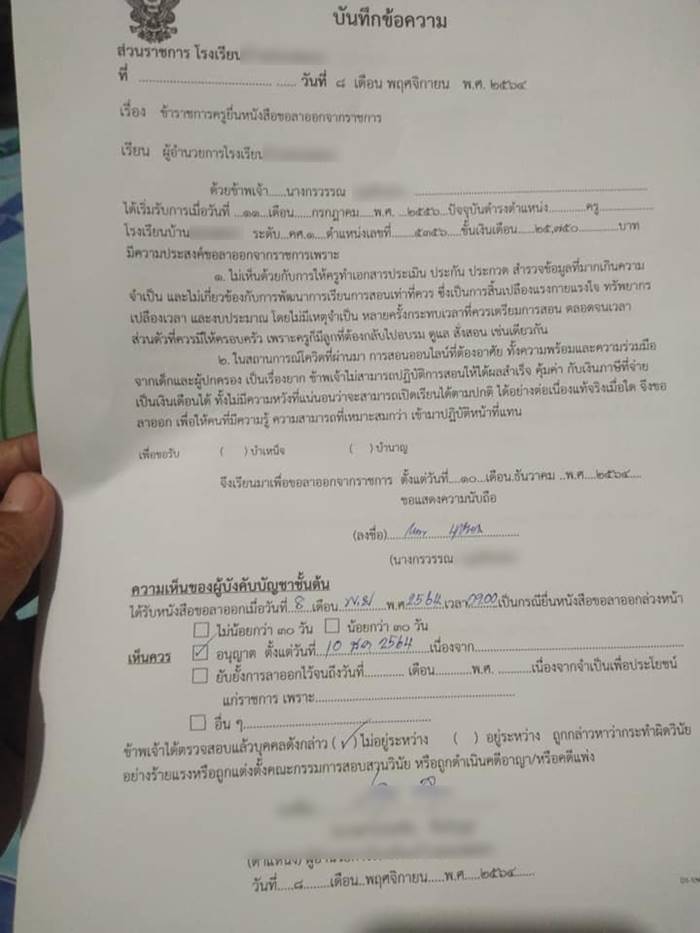 บันทึกข้อความ
ส่วนราชการ โรงเรียน
ที่ ........................................ ...... วันที่ ๘ เดือน พฤศจิกายน พ.ศ. ๒๕๖๔
เรื่อง ข้าราชการครูยื่นหนังสือขอลาออกจากราชการ
เรียน ผู้อำนวยการโรงเรียน
ด้วยข้าพเจ้า.....นางกรวรรณ
ได้เริ่มรับการเมื่อวันที่ ...๑๑...เดือน......กรกฎาคม.....พ.ศ. ...๒๕๕๖...ปัจจุบันดำรงตำแหน่ง............ครู...............
โรงเรียนบ้าน ระดับ...คศ.๑....ตำแหน่งเลขที่.......๕๓๕๖.....ขั้นเงินเดือน.....๒๕,๗๕๐...........บาท
มีความประสงค์ขอลาออกจากราชการเพราะ
๑. ไม่เห็นด้วยกับการให้ครูทำเอกสารประเมิน ประกัน ประกวด สำรวจข้อมูลที่มากเกินความ
จำเป็น และไม่เกี่ยวข้องกับการพัฒนาการเรียนการสอนเท่าที่ควร ซึ่งเป็นการสิ้นเปลืองแรงกายแรงใจ ทรัพยากร
เปลืองเวลา และงบประมาณ โดยไม่มีเหตุจำเป็น หลายครั้งกระทบเวลาที่ควรเตรียมการสอน ตลอดจนเวลา
ส่วนตัวที่ควรมีให้ครอบครัว เพราะครูก็มีลูกที่ต้องกลับไปอบรม ดูแล สั่งสอน เช่นเดียวกัน
๒. ในสถานการณ์โควิดที่ผ่านมา การสอนออนไลน์ที่ต้องอาศัย ทั้งความพร้อมและความร่วมมือ
จากเด็กและผู้ปกครอง เป็นเรื่องยาก ข้าพเจ้าไม่สามารถปฏิบัติการสอนให้ได้ผลสำเร็จ คุ้มค่า กับเงินภาษีที่จ่าย
เป็นเงินเดือนได้ ทั้งไม่มีความหวังที่แน่นอนว่าจะสามารถเปิดเรียนได้ตามปกติ ได้อย่างต่อเนื่องแท้จริงเมื่อใด จึงขอ
ลาออก เพื่อให้คนที่มีความรู้ ความสามารถที่เหมาะสมกว่า เข้ามาปฏิบัติหน้าที่แทน
เพื่อขอรับ ( ) บำเหน็จ ( ) บำนาญ
จึงเรียนมาเพื่อขอลาออกจากราชการ ตั้งแต่วันที่....๑๐...เดือน.ธันวาคม ..พ.ศ....๒๕๖๔....
ขอแสดงความนับถือ
(ลงชื่อ)
(นางกรวรรณ
ความเห็นของผู้บังคับบัญชาชั้นต้น
ได้รับหนังสือขอลาออกเมื่อวันที่ 8 เดือน พ.ย พ.ศ.2564 เวลา 0900 เป็นกรณียื่นหนังสือขอลาออกล่วงหน้า
ไม่น้อยกว่า ๓๐ วัน น้อยกว่า ๓๐ วัน
เห็นควร อนุญาต ตั้งแต่วันที่ 10 ธค 2564 เนื่องจาก
ยับยั้งการลาออกไว้จนถึงวันที่............ เดือน............พ.ศ. ............เนื่องจากจำเป็นเพื่อประโยชน์
แก่ราชการ เพราะ
อื่น ๆ
ข้าพเจ้าได้ตรวจสอบแล้วบุคคลดังกล่าว (✓) ไม่อยู่ระหว่าง ( ) อยู่ระหว่าง ถูกกล่าวหาว่ากระทำผิดวินัย
อย่างร้ายแรงหรือถูกแต่งตั้งคณะกรรมการสอบสวนวินัย หรือถูกดำเนินคดีอาญา/หรือคดีแพ่ง
(ตำแหน่ง) ผู้อำนวยการ
วันที่.....๘........เดือน..พฤศจิกายน.....พ.ศ.....๒๕๖๔......